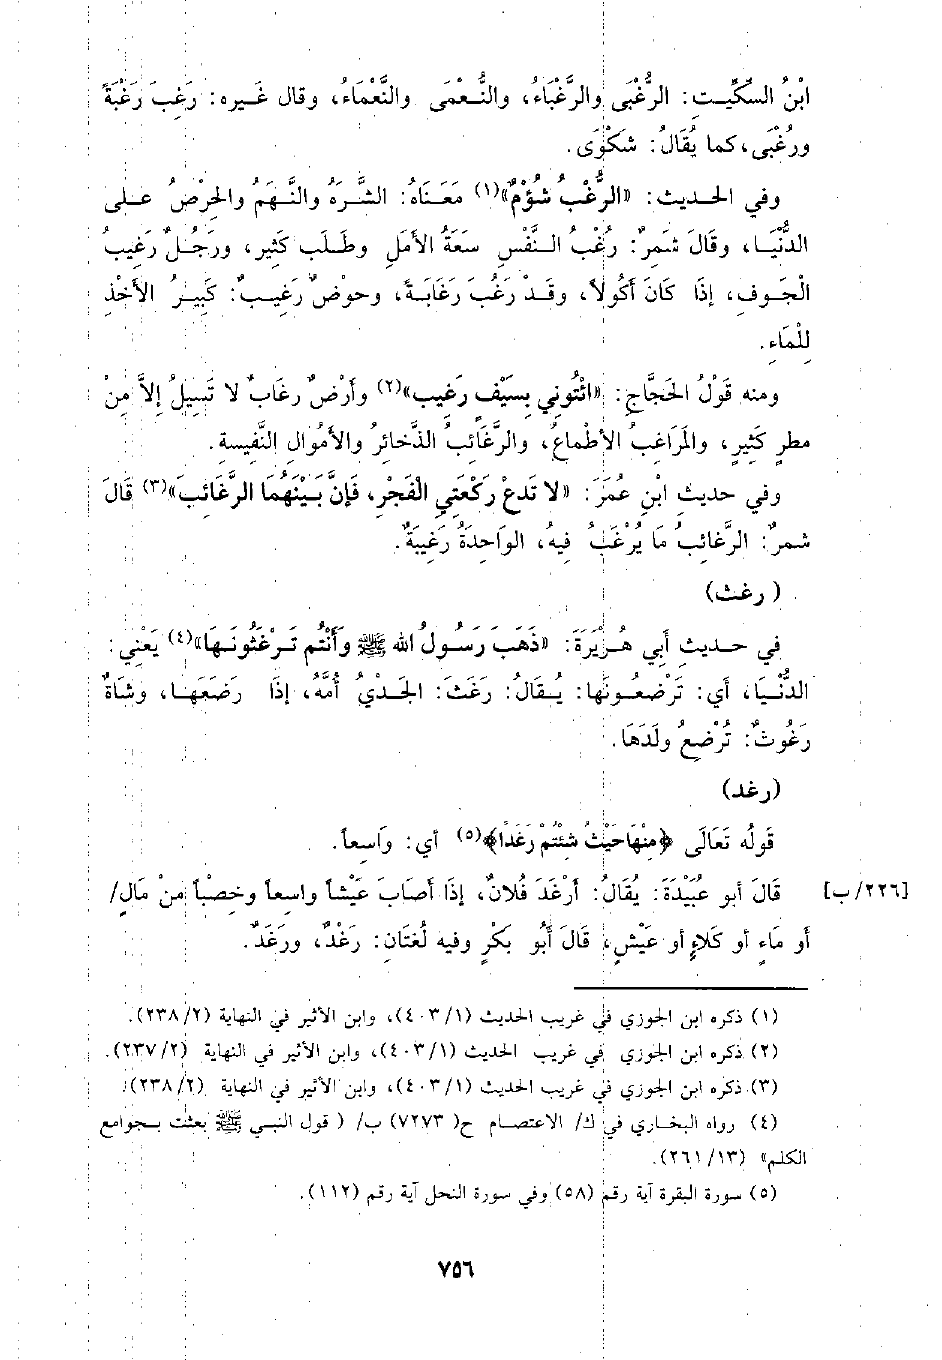 ابْنُ السِّكِّيت: الرُّغْبَى والرَّغْبَاءُ، والنُّعْمَى والنَّعْمَاءُ، وقال غَيره: رَغِبَ رَغْبَةً
ورُغْبَى، كما يُقَالُ: شَكْوَى.
وفي الحديث: «الرُّغْبُ شُؤْمٌ»(١) مَعَنَاهُ: الشَّرَهُ والنَّهَمُ والحِرْصُ على
الدُّنْيَا، وقَالَ شَمِرٌ: رُغْبُ النَّفْسِ سَعَةُ الأمَلِ وطَلَب كَثِير، ورَجُلٌ رَغِيبُ
الْجَوفِ، إذَا كَانَ أكُولاً، وقَدْ رَغُبَ رَغَابَةً، وحوضٌ رَغِيبٌ: كَبِيرُ الأخْذِ
لِلْمَاءِ.
ومنه قَوْلُ الحَجَّاجِ: «ائْتُونِي بِسَيْفٍ رَغِيب»(٢) وأرْضٌ رغَابٌ لا تَسِيلُ إلاَّ مِنْ
مطرٍ كَثِيرٍ، والمَرَاغِبُ الأطْماعُ، والرَّغَائِبُ الذَّخائِرُ والأمْوالِ النَّفِيسة.
وفي حديثِ ابْنِ عُمَرَ: «لا تَدعْ رَكْعَتي الْفَجْرِ، فَإنَّ بَيْنَهُمَا الرَّغَائبَ»(٣) قَالَ
شمرٌ: الرَّغائبُ مَا يُرْغَبُ فيهُ، الوَاحدَةُ رَغِيبَةٌ.
(رغث)
في حديثِ أبي هُرَيْرَةَ: «ذَهَبَ رَسُولُ الله ﷺ وأَنْتُم تَرْغَثُونَهَا»(٤) يَعْنِي:
الدُّنْيَا، أي: تَرْضعُونها: يُقالُ: رَغَثَ: الجَدْيُ أُمَّهُ، إذَا رَضَعَهَا، وشَاةٌ
رَغُوثٌ: تُرْضِعُ ولَدَهَا.
(رغد)
قَولُه تَعَالَى ﴿مِنْهَا حَيْثُ شِئْتُمْ رَغَداً﴾(٥) أي: وَاسعاً.
[٢٢٦/ب] قَالَ أبو عُبَيْدَةَ: يُقَالُ: أرْغَدَ فُلانٌ، إذَا أصَابَ عَيْشاً واسعاً وخصْباً منْ مَالٍ/
أَو مَاءٍ أو كَلاءٍ أو عَيْشٍ، قَالَ أَبُو بَكْرٍ وفيه لُغتَان: رَغْدٌ، ورَغَدٌ.
(١) ذكره ابن الجوزي في غريب الحديث (٤٠٣/١)، وابن الأثير في النهاية (٢٣٨/٢).
(٢) ذكره ابن الجوزي في غريب الحديث (٤٠٣/١)، وابن الأثير في النهاية (٢٣٧/٢).
(٣) ذكره ابن الجوزي في غريب الحديث (٤٠٣/١)، وابن الأثير في النهاية (٢٣٨/٢).
(٤) رواه البخاري في ك/ الاعتصام ح(٧٢٧٣) ب/ ( قول النبي ﷺ بعثت بجوامع
الكلم» (٢٦١/١٣).
(٥) سورة البقرة آية رقم (٥٨) وفي سورة النحل آية رقم (١١٢).
٧٥٦